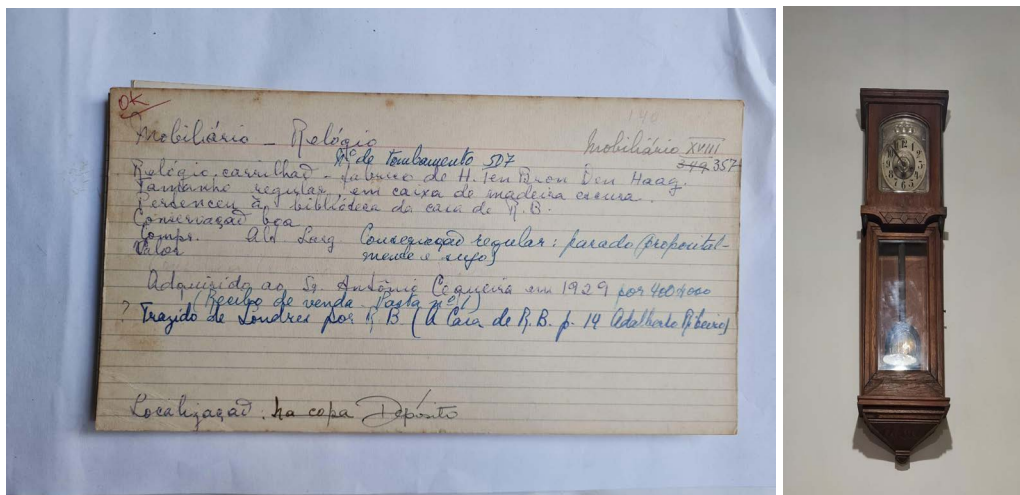 OK
Mobiliário - Relógio
Mobiliário XVIII
Nº de tombamento 507
349 357
Relógio carrilhão - fabrico de H. Ten Bron Den Haag.
Tamanho regular, em caixa de madeira escura.
Pertenceu à biblioteca da casa de R. B.
Conservação boa
Compr. Alt. Larg. Conservação regular: parado (proposital-
Valor mente e sujo)
Adquirido ao Sr. António Cerqueira em 1929 por 400$000
(Recibo de venda - Pasta nº 1)
? Trazido de Londres por R B (A Casa de R. B. p. 19 Adalberto Ribeiro)
Localização. na copa Depósito